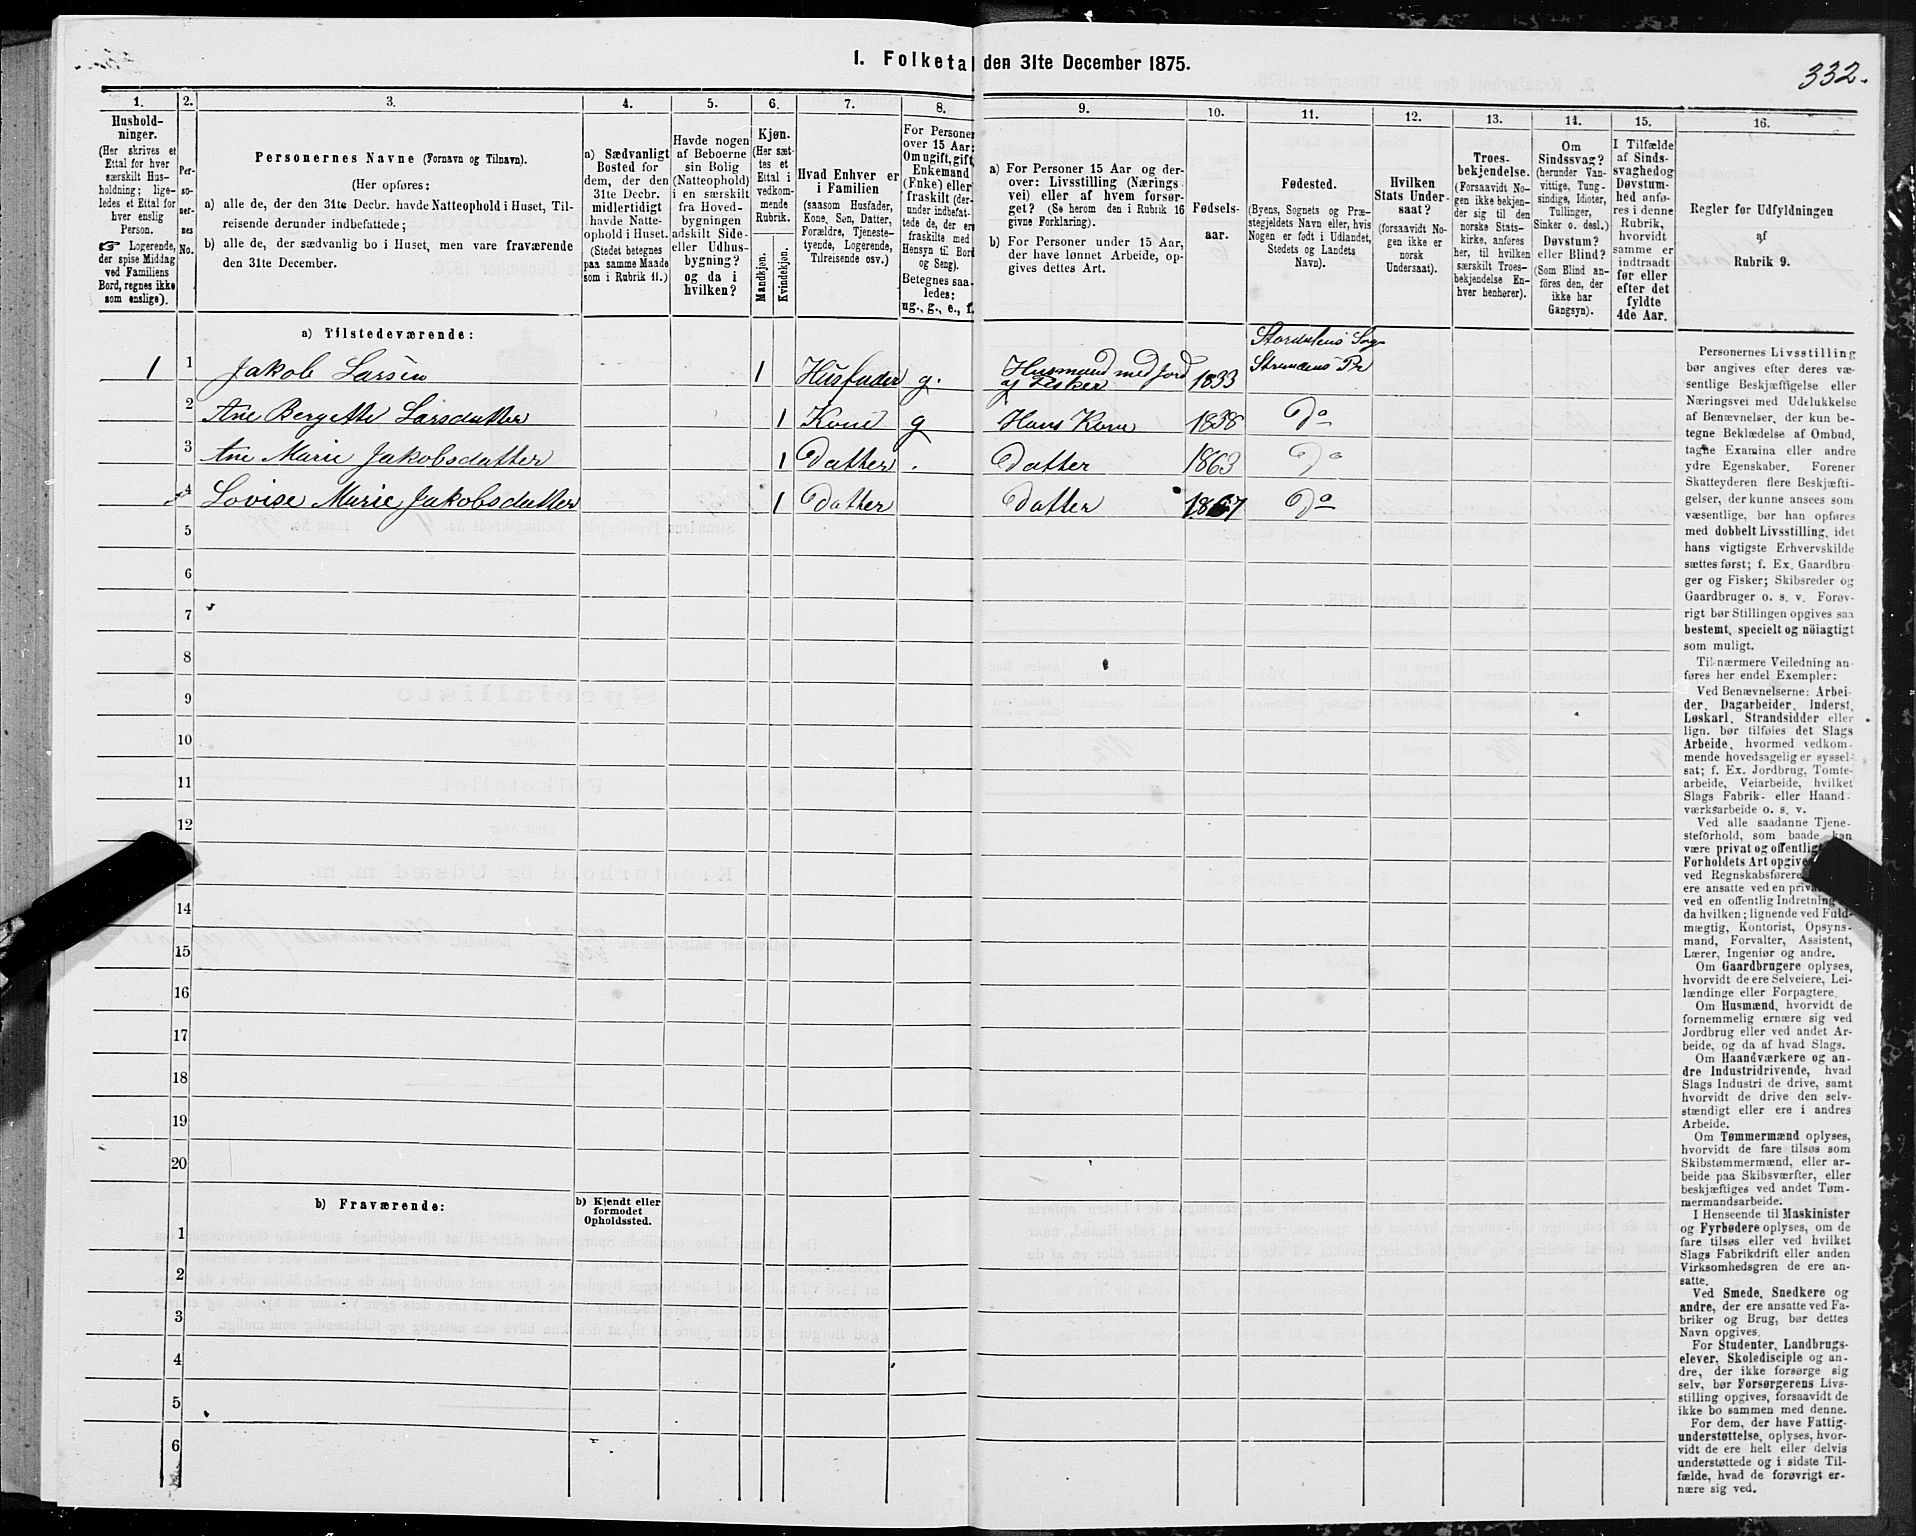 1. Folketal den 31te December 1875.
332.
1.
2.
3.
4.
5.
6.
7.
8.
9.
10.
11.
12.
13.
14.
15.
16.
Hushold-
ninger.
(Her skrives et
Ettal for hver
særskilt Hus-
holdning; lige-
ledes et Ettal for
hver enslig
Person.
☞ Logerende,
der spise Middag
ved Familiens
Bord, regnes ikke
som enslige).
Per-
so-
ner-
nes
No.
Personernes Navne (Fornavn og Tilnavn).
(Her opføres:
a) alle de, der den 31te Decbr. havde Natteophold i Huset, Til-
reisende derunder indbefattede;
b) alle de, der sædvanlig bo i Huset, men vare fraværende
den 31te December.
a) Sædvanligt
Bosted for
dem, der den
31te Decbr.
midlertidigt
havde Natte-
ophold i Huset.
(Stedet betegnes
paa samme Maade
som i Rubrik 11.)
Havde nogen
af Beboerne
sin Bolig
(Natteophold)
i en særskilt
fra Hoved-
bygningen
adskilt Side-
eller Udhus-
bygning?
og da i
hvilken?
Kjøn.
(Her sæt-
tes et
Ettal i
vedkom-
mende
Rubrik.
Mandkjøn.
Kvindekjøn.
Hvad Enhver er
i Familien
(saasom Husfader,
Kone, Søn, Datter,
Forældre, Tjeneste-
tyende, Logerende,
Tilreisende osv.)
For Personer
over 15 Aar:
Om ugift, gift,
Enkemand
(Enke) eller
fraskilt (der-
under indbefat-
tede de, der ere
fraskilte med
Hensyn til Bord
og Seng).
Betegnes saa-
ledes:
ug., g., e., f.
a) For Personer 15 Aar og der-
over: Livsstilling (Nærings
vei) eller af hvem forsør-
get? (Se herom den i Rubrik 16
givne Forklaring).
b) For Personer under 15 Aar,
der have lønnet Arbeide, op-
gives dettes Art.
Fødsels-
aar.
Fødested.
(Byens, Sognets og Præ-
stegjeldets Navn eller, hvis
Nogen er født i Udlandet,
Stedets og Landets
Navn).
Hvilken
Stats Under-
saat?
(forsaavidt No-
gen ikke er
norsk
Undersaat).
Troes-
bekjendelse.
(Forsaavidt No-
gen ikke bekjen-
der sig til den
norske Stats-
kirke, anføres
her, til hvilken
særskilt Troes-
bekjendelse En-
hver henhører).
Om
Sindssvag?
(herunder Van-
vittige, Tung-
sindige, Idioter,
Tullinger,
Sinker o. desl.)
Døvstum?
eller Blind?
(Som Blind an-
føres den, der
ikke har
Gangsyn).
I Tilfælde
af Sinds-
svaghed og
Døvstum-
hed anfø-
res i denne
Rubrik,
hvorvidt
samme er
indtraadt
før eller
efter det
fyldte
4de Aar.
Regler for Udfyldningen
af
Rubrik 9.
a) Tilstedeværende:
Stordalens Sogn
1 1 Jakob Larsen 1 Husfader g. Husmand med Jord 1833 Strandens Pr
og Fisker
2 Ane Bergette Larsdatter 1 Kone g Hans Kone 1838 Do
3 Ane Marie Jakobsdatter 1 Datter . Datter 1863 Do
4 Lovise Marie Jakobsdatter 1 Datter Datter 1867 Do
5
6
7
8
9
10
11
12
14
15
16
17
18
19
20
b) Fraværende:
b) Kjendt eller
formodet
Opholdssted.
1
2
3
4
5
6
Personernes Livsstilling
bør angives efter deres væ-
sentlige Beskjæftigelse eller
Næringsvei med Udelukkelse
af Benævnelser, der kun be-
tegne Beklædelse af Ombud,
tagne Examina eller andre
ydre Egenskaber. Forener
Skatteyderen flere Beskjæfti-
gelser, der kunne ansees som
væsentlige, bør han opføres
med dobbelt Livsstilling, idet
hans vigtigste Erhvervskilde
sættes først; f. Ex. Gaardbru-
ger og Fisker; Skibsreder og
Gaardbruger o. s. v. Forøv-
rigt bør Stillingen opgives saa
bestemt, specielt og nöiagtigt
som muligt.
Til nærmere Veiledning an-
føres her endel Exempler:
Ved Benævnelserne: Arbei-
der, Dagarbeider, Inderst,
Løskarl, Strandsidder eller
lign. bør tilføies det Slags
Arbeide, hvormed vedkom-
mende hovedsagelig er syssel-
sat; f. Ex. Jordbrug, Tomte-
arbeide, Veiarbeide, hvilket
Slags Fabrik- eller Haand-
værksarbeide o. s. v.
Ved alle saadanne Tjene-
steforhold, som baade kan
være privat og offentligt
Forholdets Art opgives
ved Regnskabsførere
ere ansatte ved en privat
ved en offentlig Indretning
da hvilken; lignende ved Fuld-
mægtig, Kontorist, Opsyns-
mand, Forvalter, Assistent,
Lærer, Ingeniør og andre.
Om Gaardbrugere oplyses,
hvorvidt de ere Selveiere, Lei-
lændinge eller Forpagtere.
Om Husmænd, hvorvidt de
fornemmelig ernære sig ved
Jordbrug eller ved andet Ar-
beide, og da af hvad Slags.
Om Haandværkere og an-
dre Industridrivende, hvad
Slags Industri de drive, samt
hvorvidt de drive den selv-
stændigt eller ere i andres
Arbeide.
Om Tømmermænd oplyses,
hvorvidt de fare tilsøs som
Skibstømmermænd, eller ar-
beide paa Skibsværfter, eller
beskjæftiges ved andet Tøm-
mermandsarbeide.
I Henseende til Maskinister
og Fyrbødere oplyses, om de
fare tilsøs eller ved hvilket
Slags Fabrikdrift eller anden
Virksomhedsgren de ere an-
satte.
Ved Smede, Snedkere og
andre, der ere ansatte ved Fa-
briker og Brug, bør dettes
Navn opgives.
For Studenter, Landbrugs-
elever, Skoledisciple og an-
dre, der ikke forsørge sig
selv, bør Forsørgerens Livs-
stilling opgives, forsaavidt de
ikke bo sammen med denne.
For dem, der have Fattig-
understøttelse, oplyses, hvor-
vidt de ere helt eller delvis
understøttede og i sidste Til-
fælde, hvad de forøvrigt er-
nære sig ved.